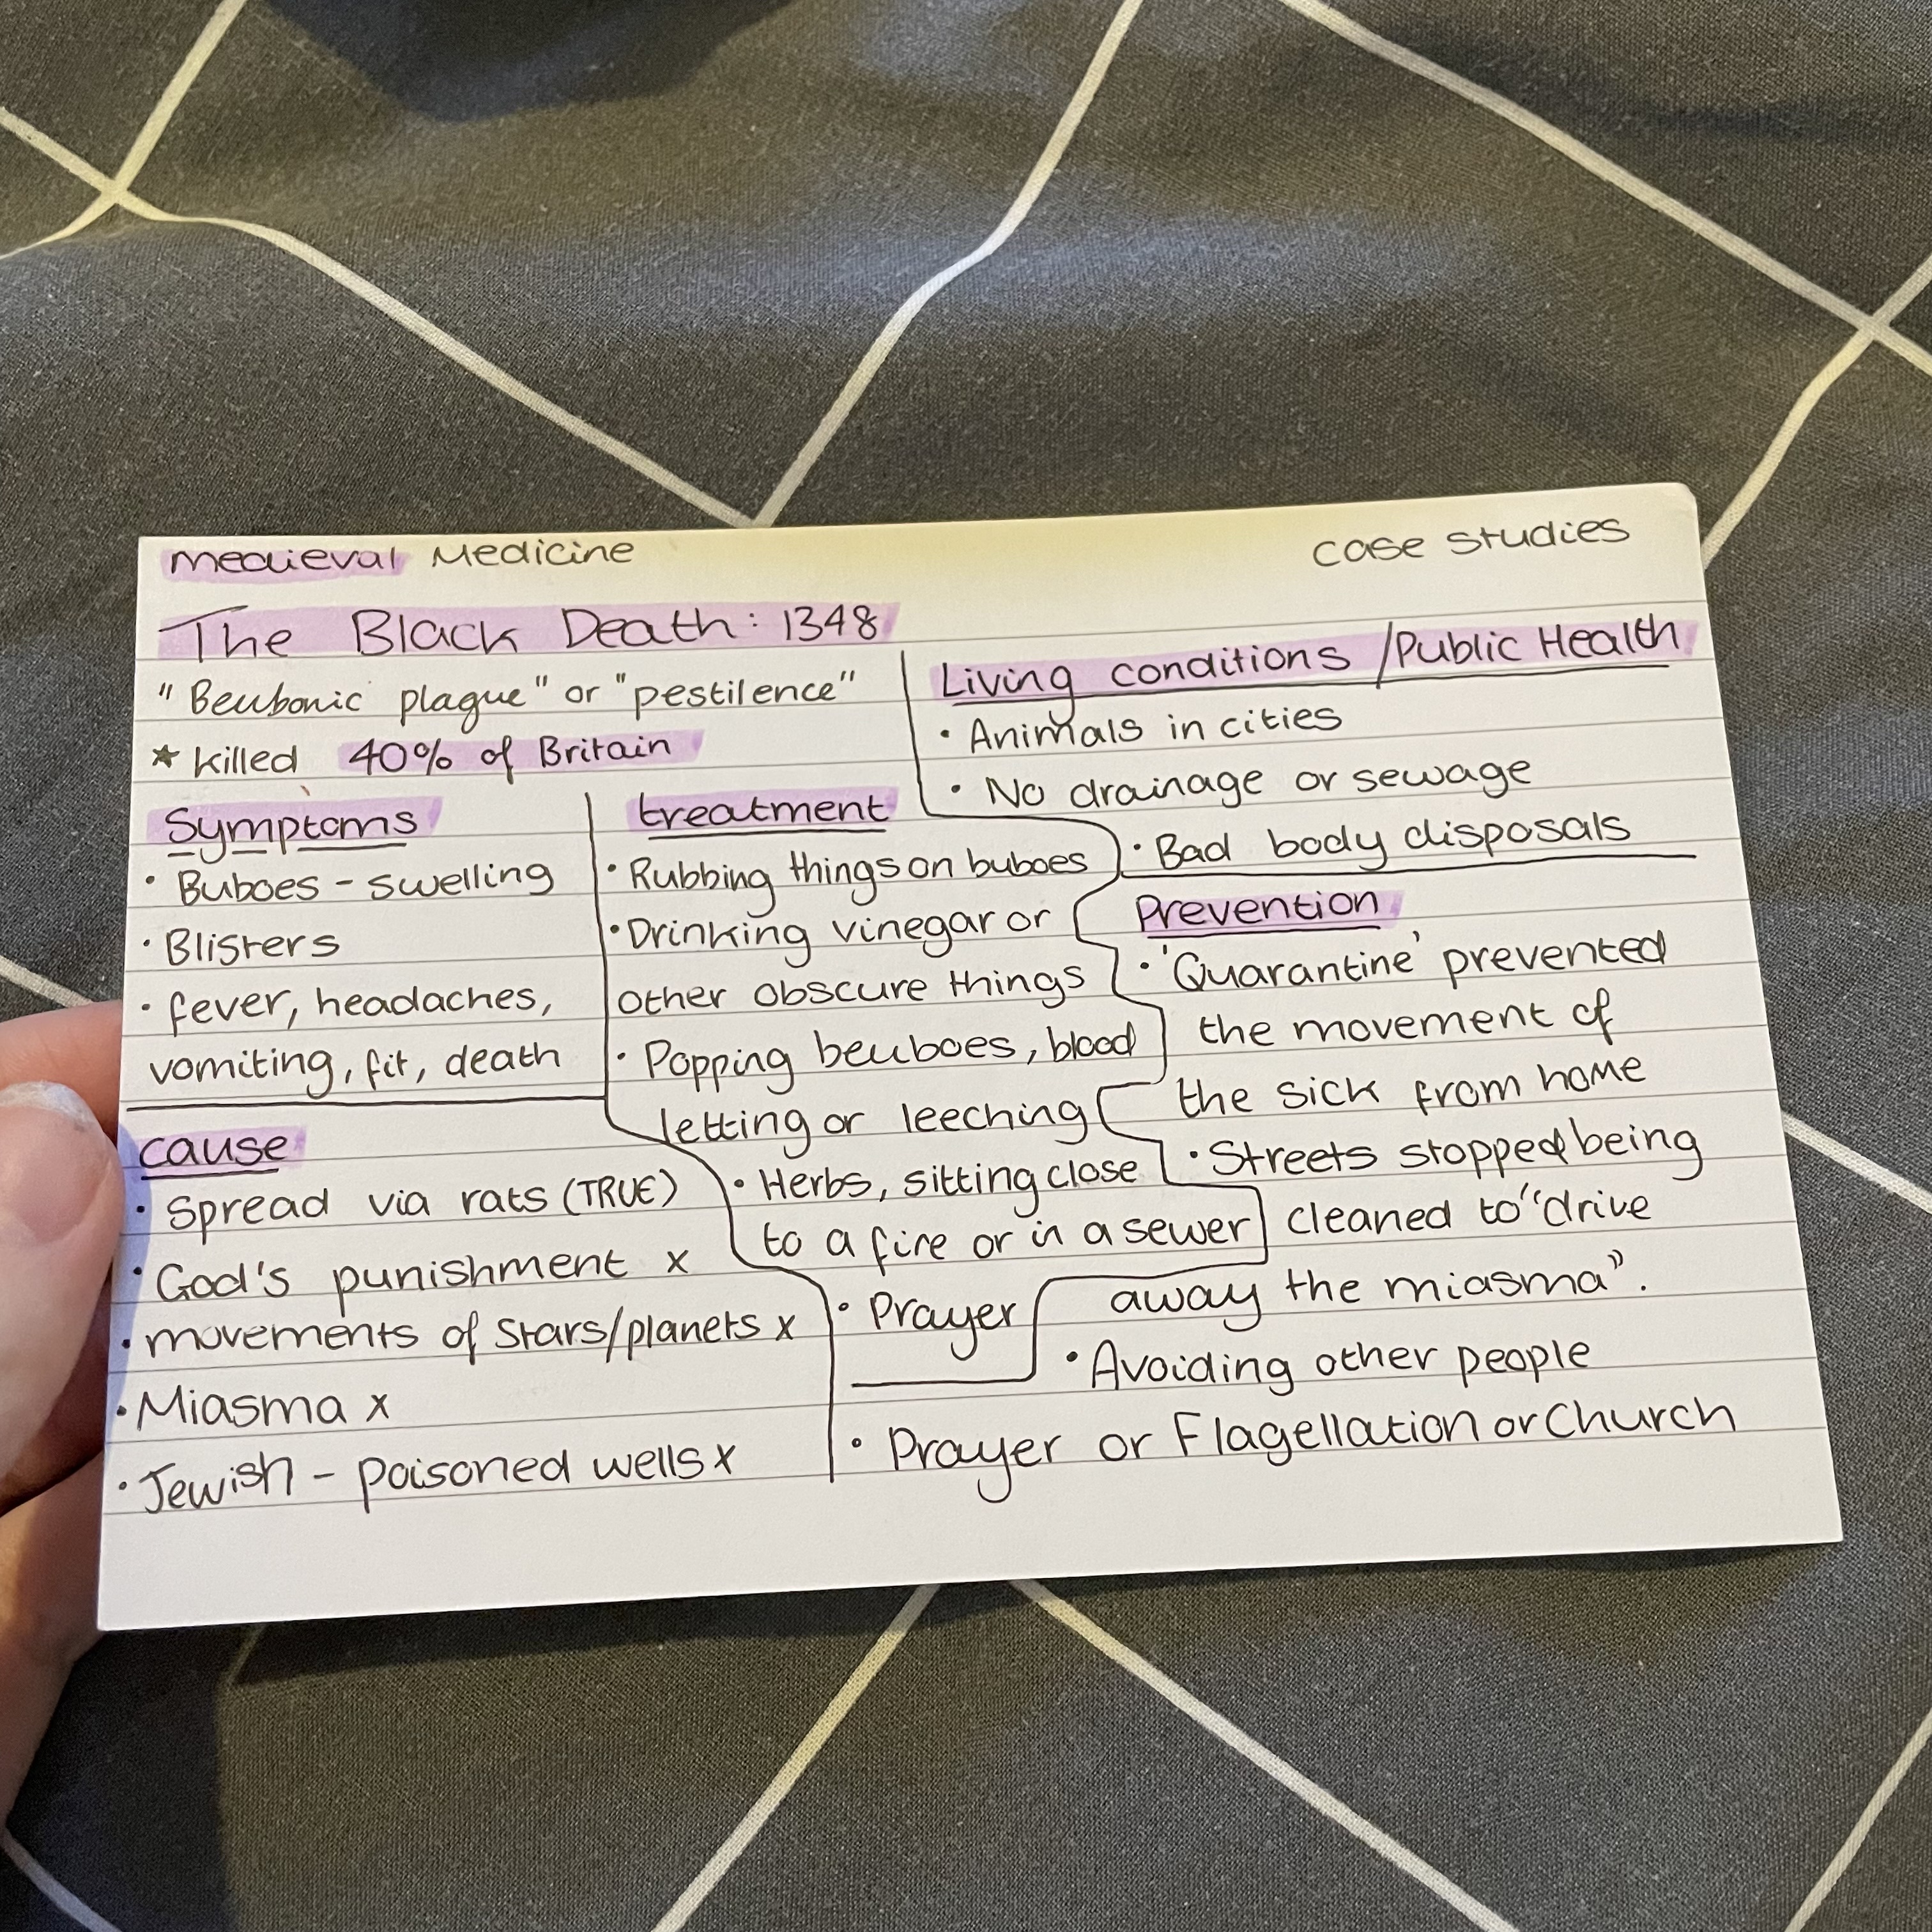 Medieval Medicine
case studies
The Black Death: 1348
"Beubonic plague" or "pestilence"
★ killed 40% of Britain
Symptoms
• Buboes - swelling
• Blisters
• fever, headaches,
vomiting, fit, death
cause
• Spread via rats (TRUE)
• God's punishment x
• movements of stars/planets x
• Miasma x
• Jewish - poisoned wells x
treatment
• Rubbing things on buboes
• Drinking vinegar or
other obscure things
• Popping beuboes, blood
letting or leeching
• Herbs, sitting close
to a fire or in a sewer
• Prayer
Living conditions /Public Health
• Animals in cities
• No drainage or sewage
• Bad body disposals
Prevention
• 'Quarantine' prevented
the movement of
the sick from home
• Streets stopped being
cleaned to "drive
away the miasma".
• Avoiding other people
• Prayer or Flagellation or Church